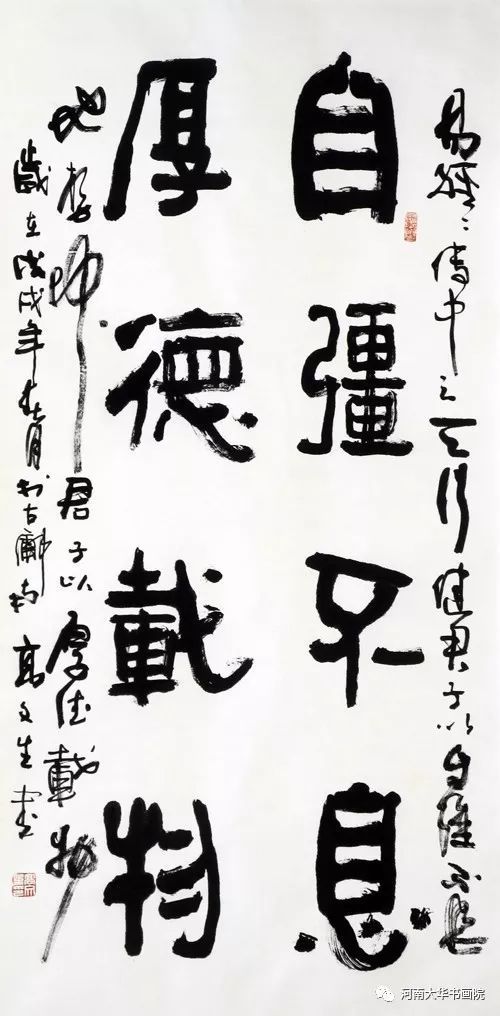 易經之傳中之天行健君子以自强不息
自彊不息
厚德載物
地勢坤君子以厚德載物
歲在戊戌年月於古高文生書
河南大华书画院